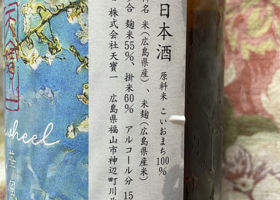 日本酒
原料米 こいおまち100%
米(広島県産)、米麹(広島県産米)
合 麹米55%、掛米60% アルコール分 15
株式会社天寶一 広島県福山市神辺町川
heel